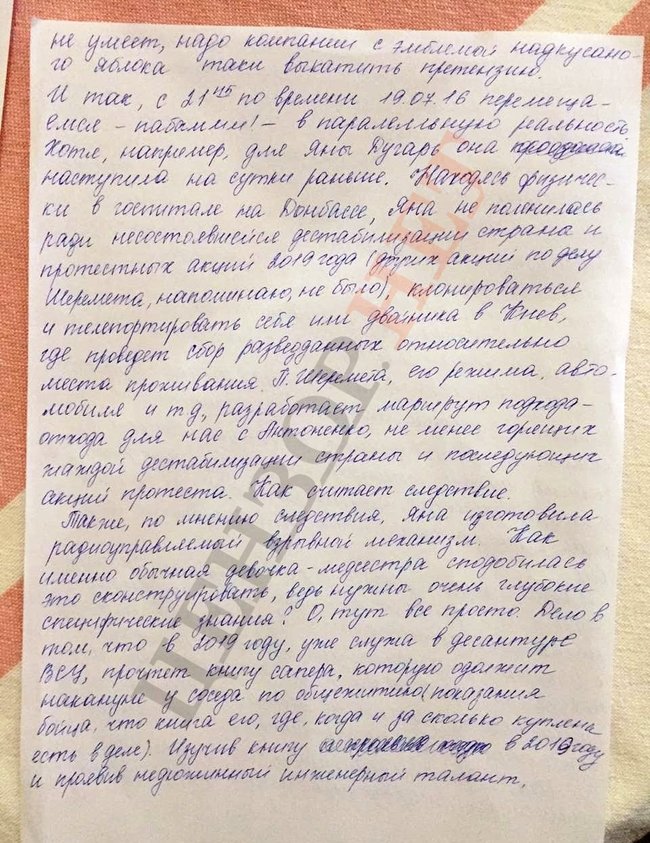 не умеет, надо компании с эмблемой надкусано-
го яблока таки выкатить претензию.
И так, с 21 45 по времени 19.07.16 перемеща-
емся – пабамммм! – в паралельную реальность.
Хотя, например, для Яны Дугарь она
наступила на сутки раньше. Находясь физичес-
ки в госпитале на Донбассе, Яна не поленилась
ради несостоявшейся дестабилизации страны и
протестных акций 2019 года (других акций по делу
Шеремета, напоминаю, не было), клонироваться
и телепортировать себя или двойника в Киев,
где проведет сбор разведданных относительно
места проживания П. Шеремета, его режима, авто-
мобиля и т.д., разработает маршрут подхода-
отхода для нас с Антоненко, не менее горящих
жаждой дестабилизации страны и последующих
акций протеста. Как считает следствие.
Также, по мнению следствия, Яна изготовила
радиоуправляемый взрывной механизм. Как
именно обычная девочка-медсестра сподобилась
это сконструировать, ведь нужны очень глубокие
специфические знания? О, тут все просто. Дело в
том, что в 2019 году, уже служа в десантуре
ВСУ, прочтет книгу сапера, которую одолжит
накануне у соседа по общежитию (показания
бойца, что книга его, где, когда и за сколько куплена
есть в деле). Изучив книгу в 2019 году
и проявив недюжинный инженерный талант,
ЦЕНЗОР.НЕТ